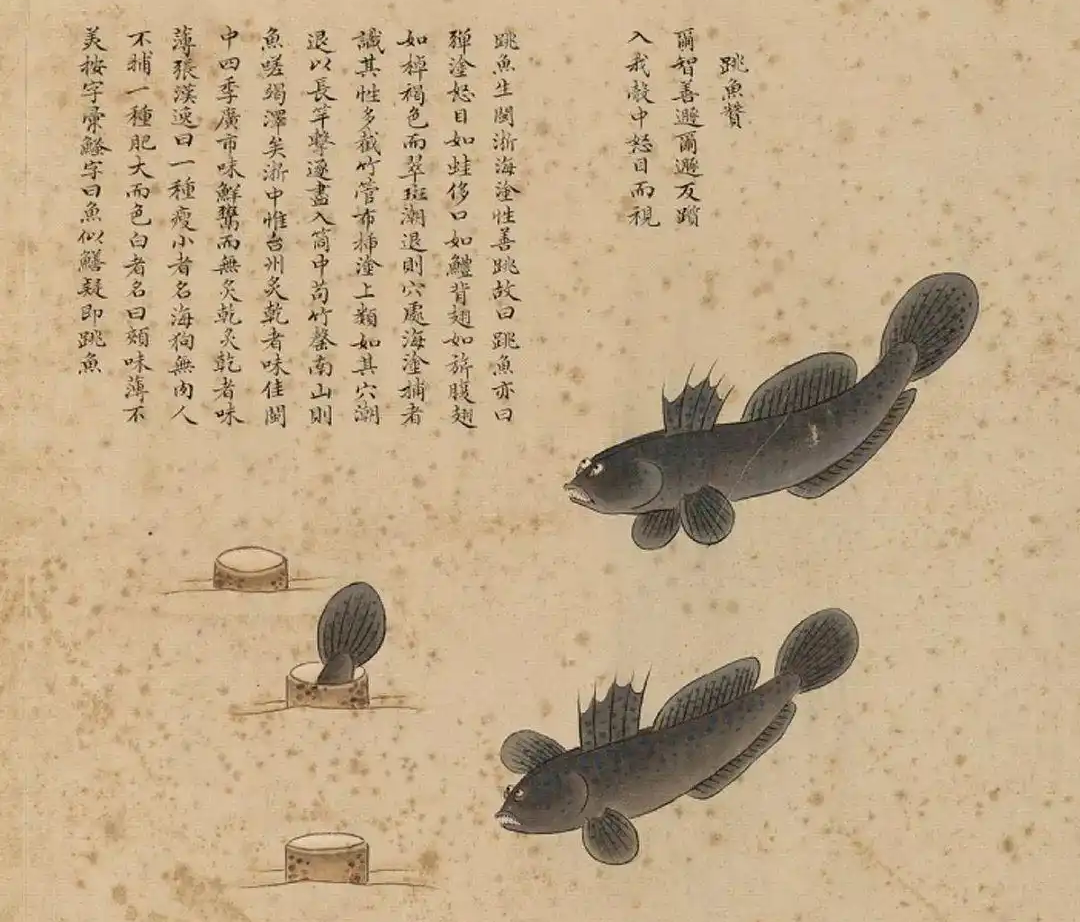 跳魚贊
爾智善避爾避反躓
入我彀中怒目而視
跳魚生閩浙海塗性善跳故曰跳魚亦曰
彈塗怒目如蛙侈口如鱧背翅如旂腹翅
如棹褐色而翠斑潮退則穴處海塗捕者
識其性多截竹管布插塗上類如其穴潮
退以長竿擊逐盡入筒中苟竹罄南山則
魚嗟竭澤矣浙中惟台州炙乾者味佳閩
中四季廣市味鮮鬻而無炙乾炙乾者味
薄張漢逸曰一種瘦小者名海狗無肉人
不捕一種肥大而色白者名曰頰味薄不
美按字彙字曰魚似鱔疑即跳魚